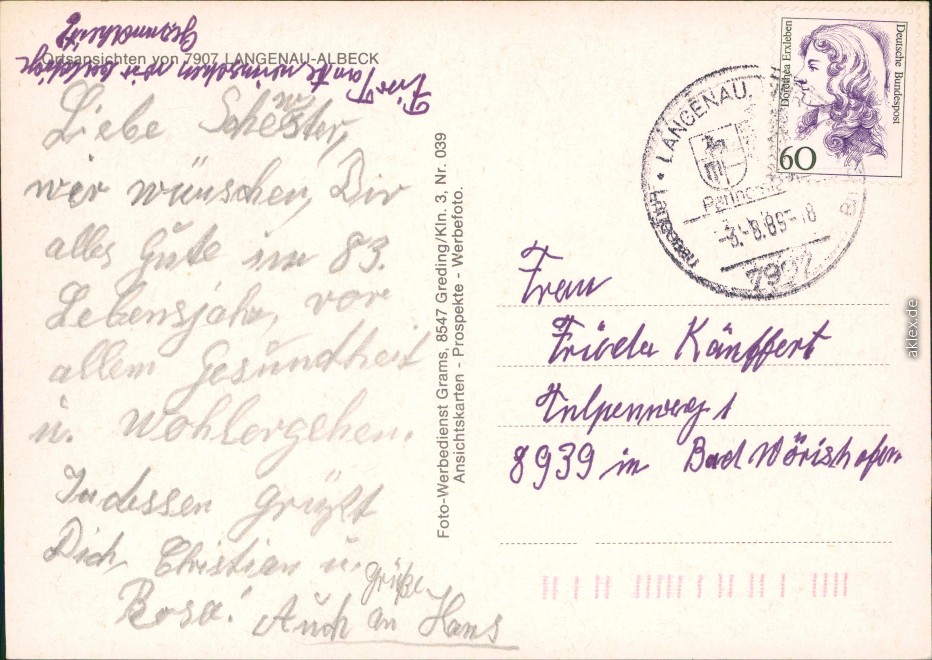 Ortsansichten von 7907 LANGENAU-ALBECK
Liebe Schester,
wir wünschen Dir
alles Gute im 83.
Lebensjahr, vor
allem Gesundheit
u. Wohlergehen.
Indessen grüßt
Dich, Christian u.
Rosa! Auch an Hans
Grüße
Tante wünschen wir
Gesundheit
Foto-Werbedienst Grams, 8547 Greding/Kln. 3, Nr. 039
Ansichtskarten - Prospekte - Werbefoto.
Deutsche Bundespost
Dorothea Erxleben
60
LANGENAU,
-3.-8.89-18
7907
Frau
Frieda Känffert
Tulpenweg 1
8939 in Bad Wörishofen
aklex.de